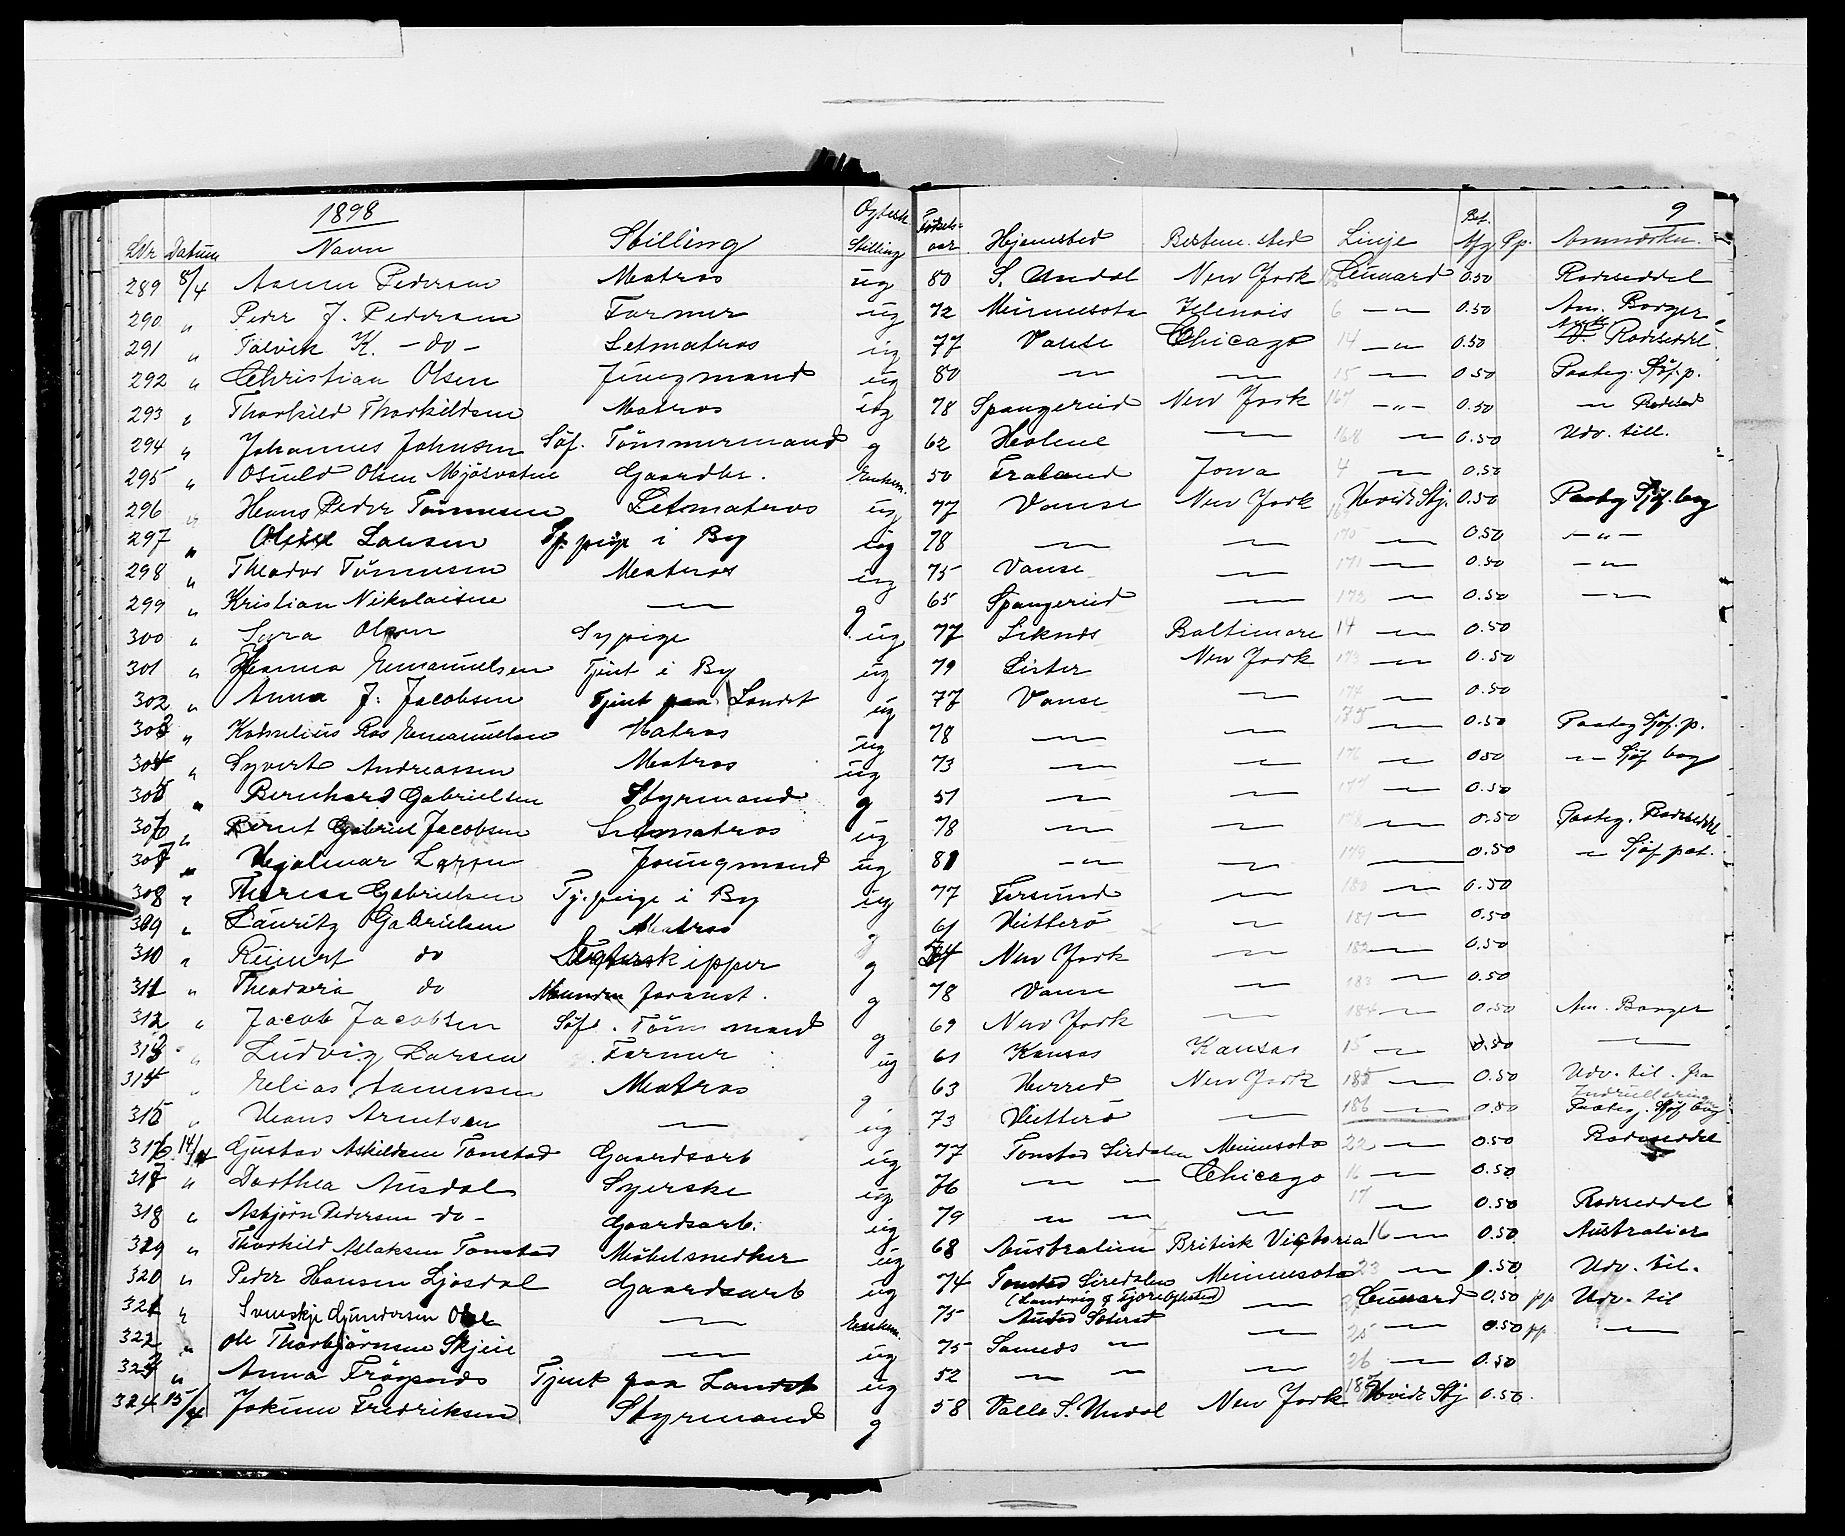 1898 9
No Datum Navn Stilling Ægtesk. Stilling Fødsels-aar Hjemsted Bestem. sted Linje Bet. Afg. Pp. Anmærkn.
289 8/4 Pedersen Matros ug 80 S. Undal New York Cunard 0.50 Rodeseddel
290 " Peder J. Pedersen Farmer ug 72 Minnesota Illinois 6 — " — 0.50 Am. Borger
291 " Talvik K. - do - Letmatros ug 77 Vanse Chicago 14 — " — 0.50 Rodeseddel
292 " Christian Olsen Jungmand ug 80 — " — — " — 15 — " — 0.50 Paateg. Søf. p.
293 " Thorkild Thorkildsen Matros ug 78 Spangereid New York 167 — " — 0.50 — " — Rodesed
294 " Johannes Johnsen Søf. Tömmermand g 62 Holme — " — 168 — " — 0.50 Udv. till.
295 " Osuld Olsen Mjösvatne Gaardbr. Enkem. 50 Fraland Jowa 4 — " — 0.50
296 " Hans Peder Tönnesen Letmatros ug 77 Vanse New York Hvide Stj. 0.50 Paateg Söf. bog
297 " Larsen Tj. pige i By ug 78 — " — — " — 170 — " — 0.50 — " —
298 " Theodor Tönnesen Matros ug 75 Vanse — " — 171 — " — 0.50 — " —
299 " Kristian Nikolaisen — " — g 65 Spangereid — " — 172 — " — 0.50 — " —
300 " Syra Olsen Sypige ug 77 Liknes Baltimore 14 — " — 0.50
301 " Hanna Emanuelsen Tjent i By ug 79 Lister New York 173 — " — 0.50
302 " Anna J. Jacobsen Tjent paa Landet ug 77 Vanse — " — 174 — " — 0.50
303 " Kornelius Ros Emanuelsen Matros ug 78 — " — — " — 175 — " — 0.50 Paateg Söf. p.
304 " Syvert Andreassen Matros ug 73 — " — — " — 176 — " — 0.50 — " — Söf bog
305 " Bernhard Gabrielsen Styrmand g 51 — " — — " — 177 — " — 0.50
306 " Bernt Gabriel Jacobsen Letmatros ug 78 — " — — " — 178 — " — 0.50 Paateg. Rodeseddel
307 " Hjalmar Larsen Jungmand ug 81 — " — — " — 179 — " — 0.50 — " — Söf pat.
308 " Therese Gabrielsen Tj. pige i By ug 77 Farsund — " — 180 — " — 0.50
309 " Lauritz Gabrielsen Matros g 61 Hitterö — " — 181 — " — 0.50
310 " do g New York — " — 182 — " — 0.50
311 " Theodora do g 78 Vanse — " — 183 — " — 0.50
312 " Jacob Jacobsen Söf. Töm mand g 69 New York — " — 184 — " — 0.50 Am. Borger
313 " Ludvig Larsen Farmer ug 61 Kansas Kansas 15 — " — 0.50 — " —
314 " Elias Matros g 63 Herred New York 185 — " — 0.50 Udv. til. fra Indrulleringen
315 " Hans Arntsen — " — ug 73 Hitterö — " — 186 — " — 0.50 Paateg. Söf bog
316 14/4 Gustav Askildsen Tonstad Gaardsarb ug 77 Tonstad Sirdalen Minnesota 22 — " — 0.50 Rodeseddel
317 " Dorthea Ausdal Syerske ug 76 — " — — " — Chicago 16 — " — 0.50
318 " Asbjørn Pedersen - do - Gaardsarb. ug 79 — " — — " — — " — 17 — " — 0.50 Rodseddel
319 " Thorkild Atlaksen Tonstad Möbelsnedker ug 68 Australien British Victoria 16 — " — 0.50 Australier
320 " Peder Hansen Ljosdal Gaardsarb ug 74 Tonstad Siredalen Minnesota 23 — " — 0.50 Udv. til.
321 " Gundersen — " — Enkem. 75 — " — Cunard 0.50 pp Udv. til
322 " Ole Thorbjörnsen Skjeie — " — ug 75 Sameds — " — — " — 25 — " — 0.50 pp. — " —
323 " Anna Tjent paa Landet ug 52 — " — — " — — " — 26 — " — 0.50
324 15/4 Jokum Fredriksen Styrmand g 58 Valle S. Undal New York Hvide Stj 0.50